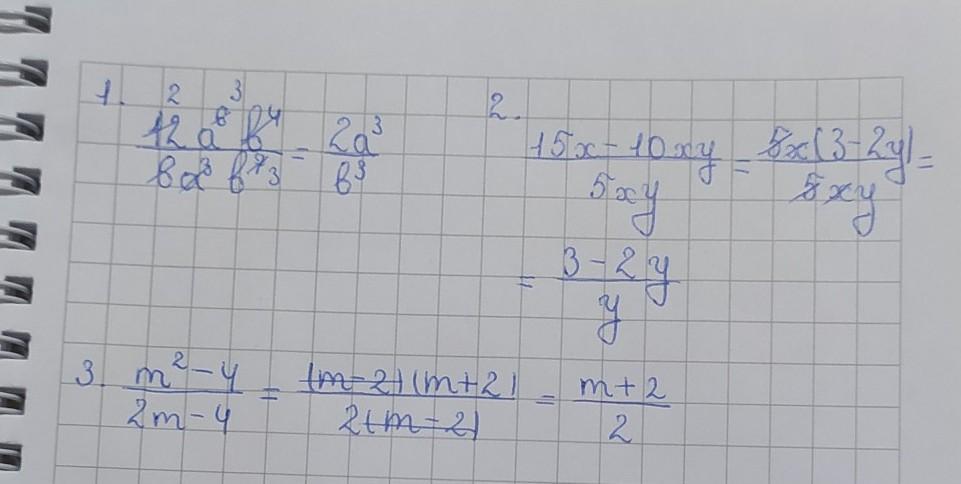 1. \frac{12a^6b^4}{6a^3b^7} = \frac{2a^3}{b^3}
2. \frac{15x-10xy}{5xy} = \frac{5x(3-2y)}{5xy} =
= \frac{3-2y}{y}
3. \frac{m^2-4}{2m-4} = \frac{(m-2)(m+2)}{2(m-2)} = \frac{m+2}{2}